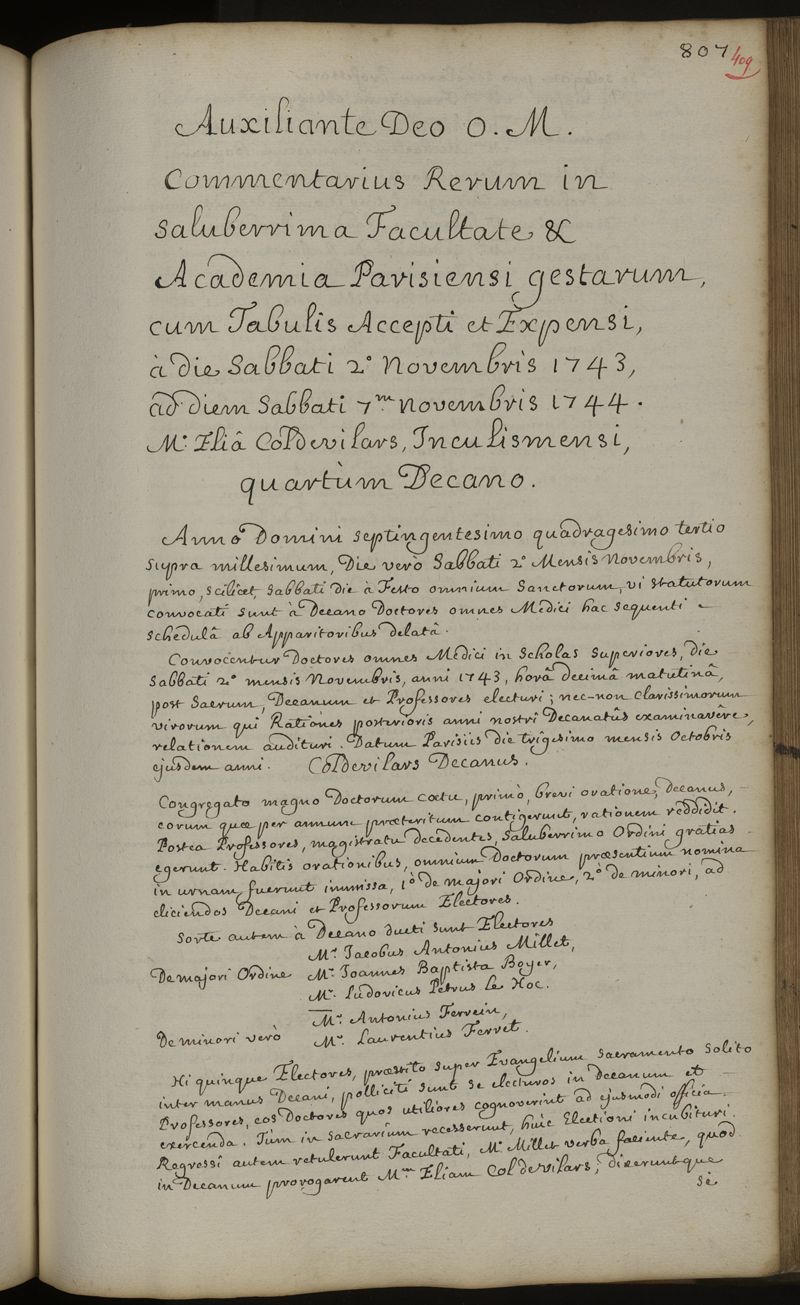 807
409
Auxiliante Deo O. M.
Commentarius Rerum in
saluberrima Facultate &
Academia Parisiensi gestarum,
cum Tabulis Accepti et Expensi,
à die Sabbati 2° Novembris 1743,
ad diem Sabbati 7m novembris 1744.
Mo Eliâ Coldevilars, Inculismensi,
quartùm Decano.
Anno Domini septingentesimo quadragesimo tertio
supra millesimum, Die verò Sabbati 2° Mensis Novembris,
primo, scilicet, Sabbati die à Festo omnium Sanctorum, vi statutorum
convocati sunt à Decano Doctores omnes Medici hac sequenti
schedulâ ab Apparitoribus delatâ.
Convocentur Doctores omnes Medici in Scholas Superiores, die
Sabbati 2° mensis Novembris, anni 1743, horâ decimâ matutinâ,
post Sacrum, Decanum et Professores electuri; nec-non clarissimorum
virorum qui Rationes posterioris anni nostri Decanatûs examinavêre,
relationem audituri. Datum Parisiis die trigesimo mensis Octobris
ejusdem anni. Coldevilars Decanus.
Congregato magno Doctorum coetu, primò, brevi oratione, Decanus,
eorum quæ per annum præteritum contigerunt, rationem reddidit.
Postea Professores, magistratu decedentes, saluberrimo Ordini gratias
egerunt. Habitis orationibus, omnium Doctorum præsentium nomina
in urnam fuerunt immissa, 1° de majori Ordine, 2° de minori, ad
eliciendos Decani et Professorum Electores.
Sorte autem à Decano ducti sunt Electores
Mr. Jacobus Antonius Millet,
De majori Ordine Mr. Joannes Baptista Boyer,
Mr. Ludovicus Petrus Le Hoc.
Mr. Antonius Ferrein,
De minori verò Mr. Laurentius Ferret.
Hi quinque Electores, præstito super Evangelium Sacramento solito
inter manus Decani, polliciti sunt se electuros in Decanum et
Professores, eos Doctores quos utiliores cognoverint ad ejusmodi officia
exercenda. Tùm in sacrarium recesserunt, huic Electioni incubituri.
Regressi autem retulerunt Facultati, Mo Millet verba faciente, quod
in Decanum prorogarent Mum Eliam Coldevilars; dixeruntque
sè